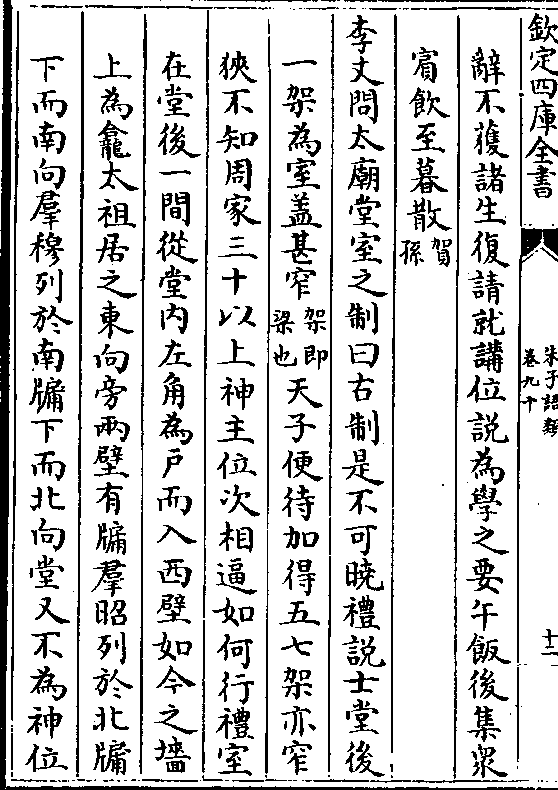 欽定四庫全書
朱子語類
卷九十
十二
辭不獲諸生復請就講位説為學之要午飯後集衆
賔飲至暮散賀孫
李丈問太廟堂室之制曰古制是不可曉禮説士堂後
一架為室盖甚窄架即梁也天子便待加得五七架亦窄
狹不知周家三十以上神主位次相逼如何行禮室
在堂後一間從堂内左角為戸而入西壁如今之墻
上為龕太祖居之東向旁兩壁有牖羣昭列於北牖
下而南向羣穆列於南牖下而北向堂又不為神位